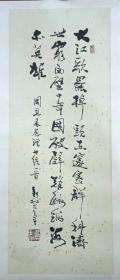 大江歌罷掉頭東邃密群科濟
世窮面壁十年圖破壁難酬蹈海
亦英雄
周恩來總理
一首